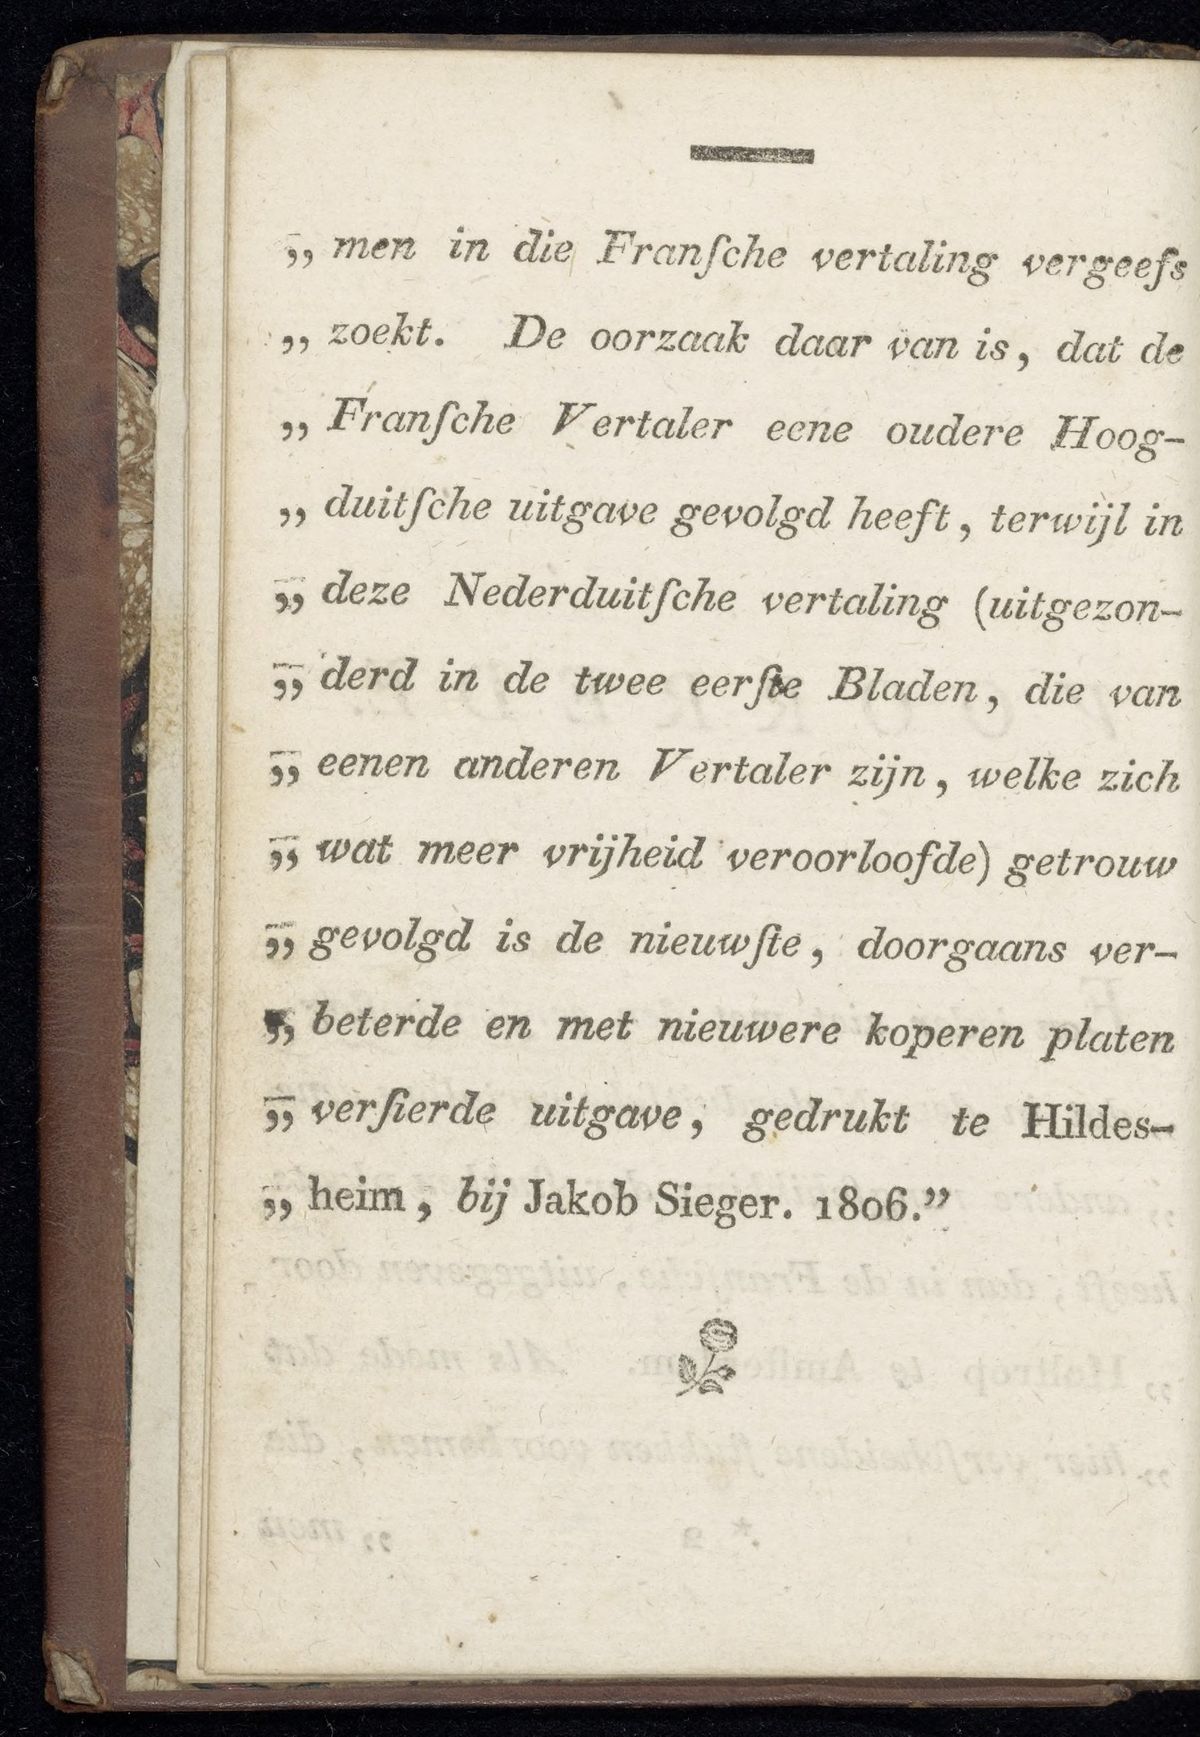 „ men in die Franſche vertaling vergeefs
„ zoekt. De oorzaak daar van is, dat de
„ Franſche Vertaler eene oudere Hoog-
„ duitſche uitgave gevolgd heeft, terwijl in
„ deze Nederduitſche vertaling (uitgezon-
„ derd in de twee eerſte Bladen, die van
„ eenen anderen Vertaler zijn, welke zich
„ wat meer vrijheid veroorloofde) getrouw
„ gevolgd is de nieuwſte, doorgaans ver-
„ beterde en met nieuwere koperen platen
„ verſierde uitgave, gedrukt te Hildes-
„ heim, bij Jakob Sieger. 1806.”